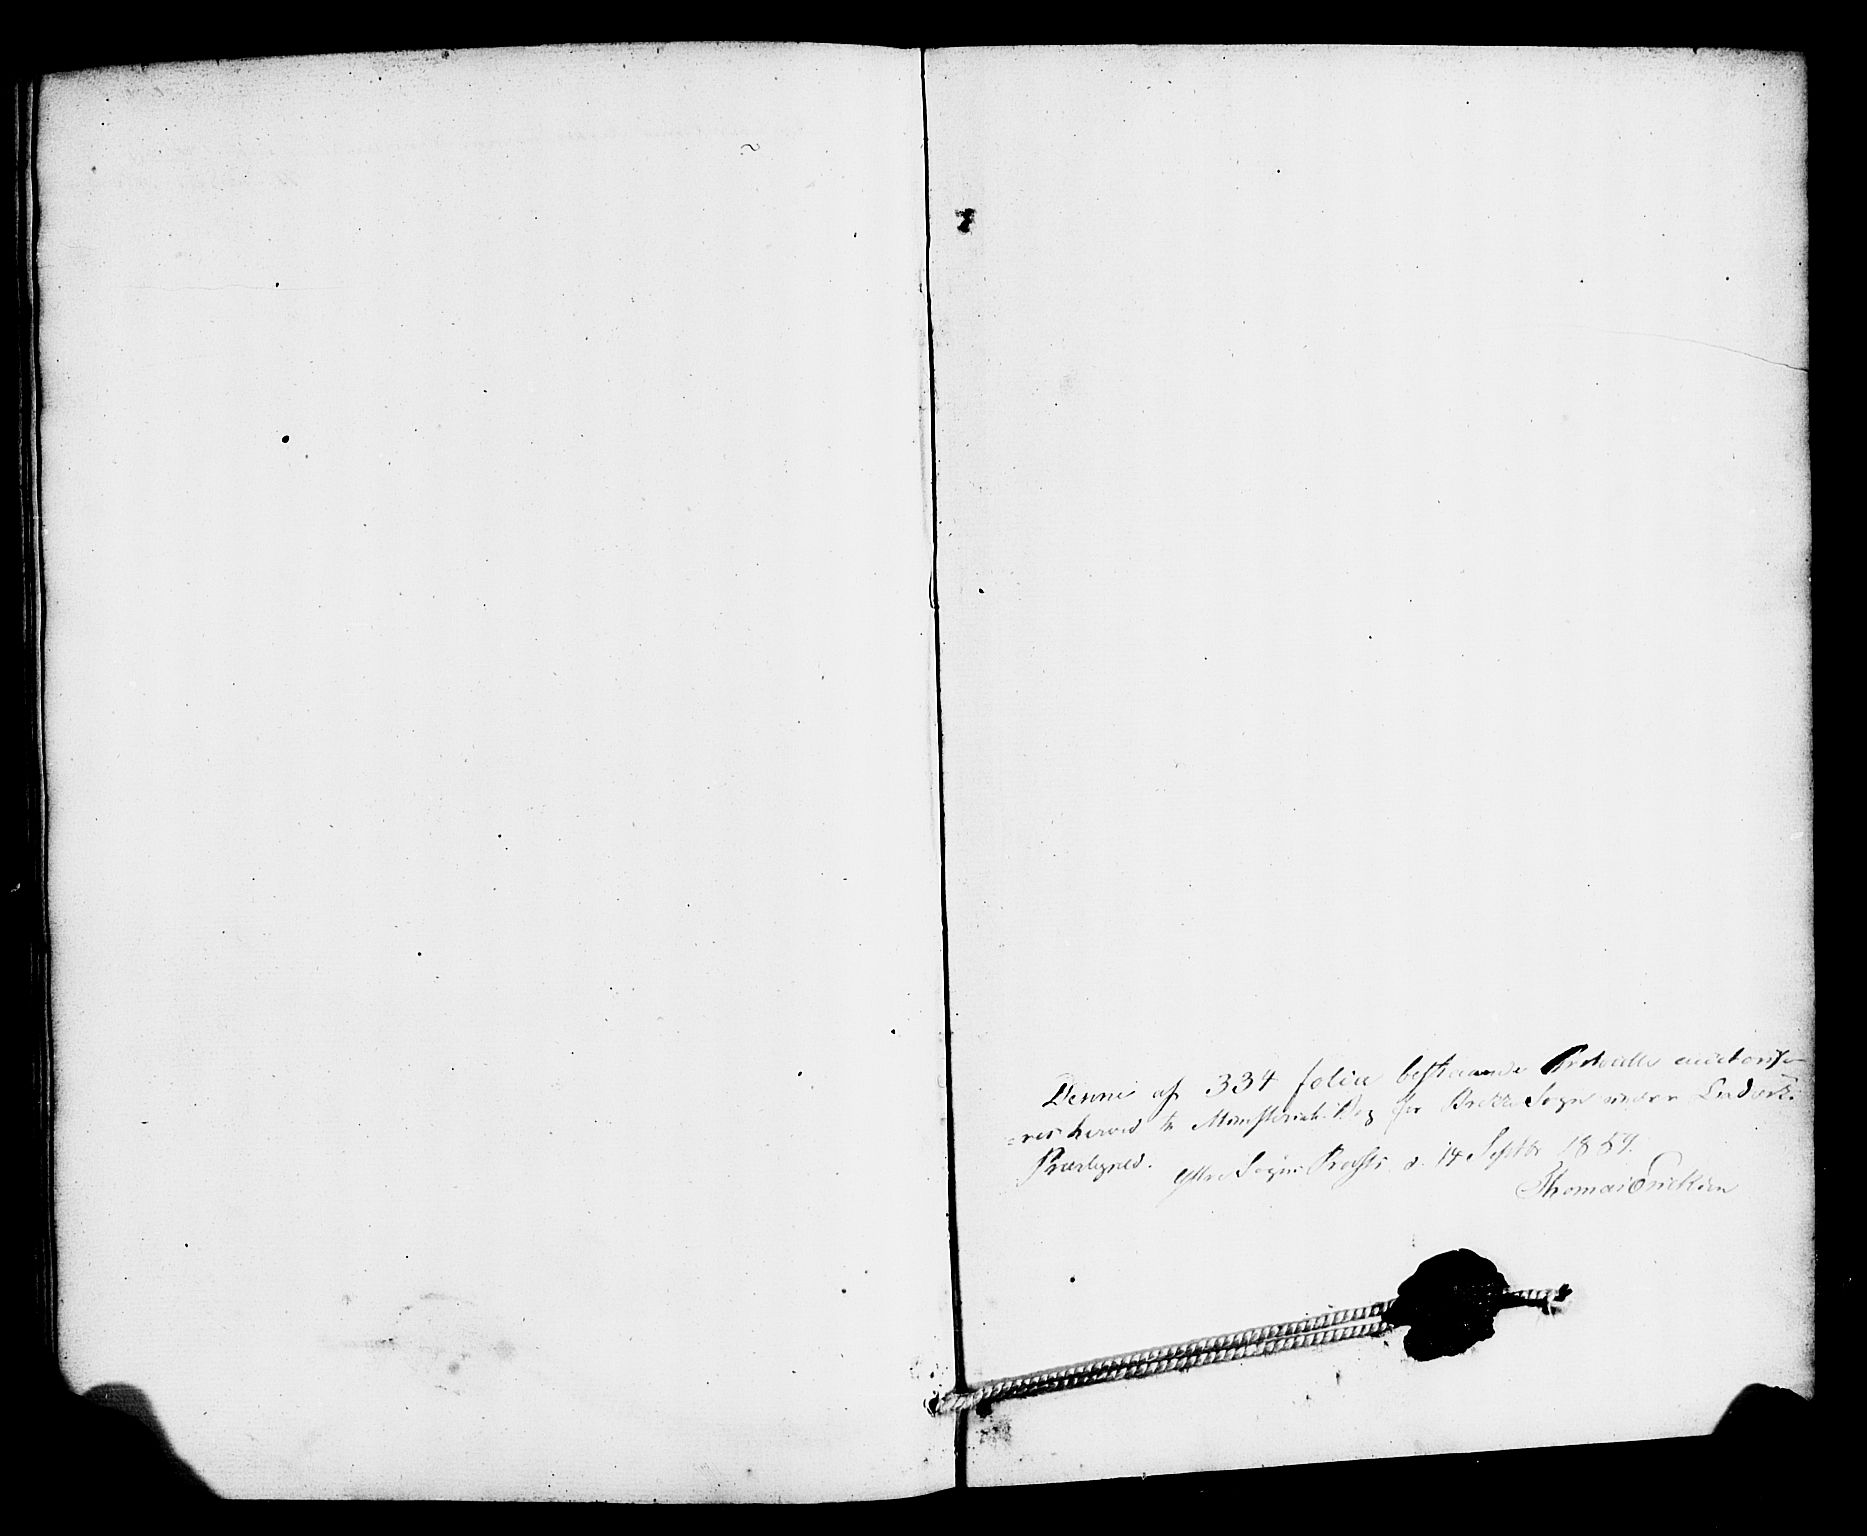 Denne af 334 folia bestaaende Protocoll authorise-
=res herved til Ministerial-Bog for Brekke Sogn under Ladvig
Præstegjeld. Yttre Sogns Provsti d. 14 Septbr 1859.
Thomas Erichsen